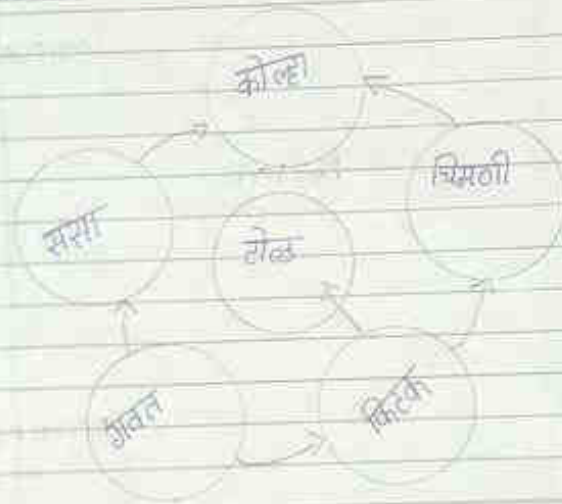 कोल्हा
चिमणी
ससा
टोळ
गवत
किटक